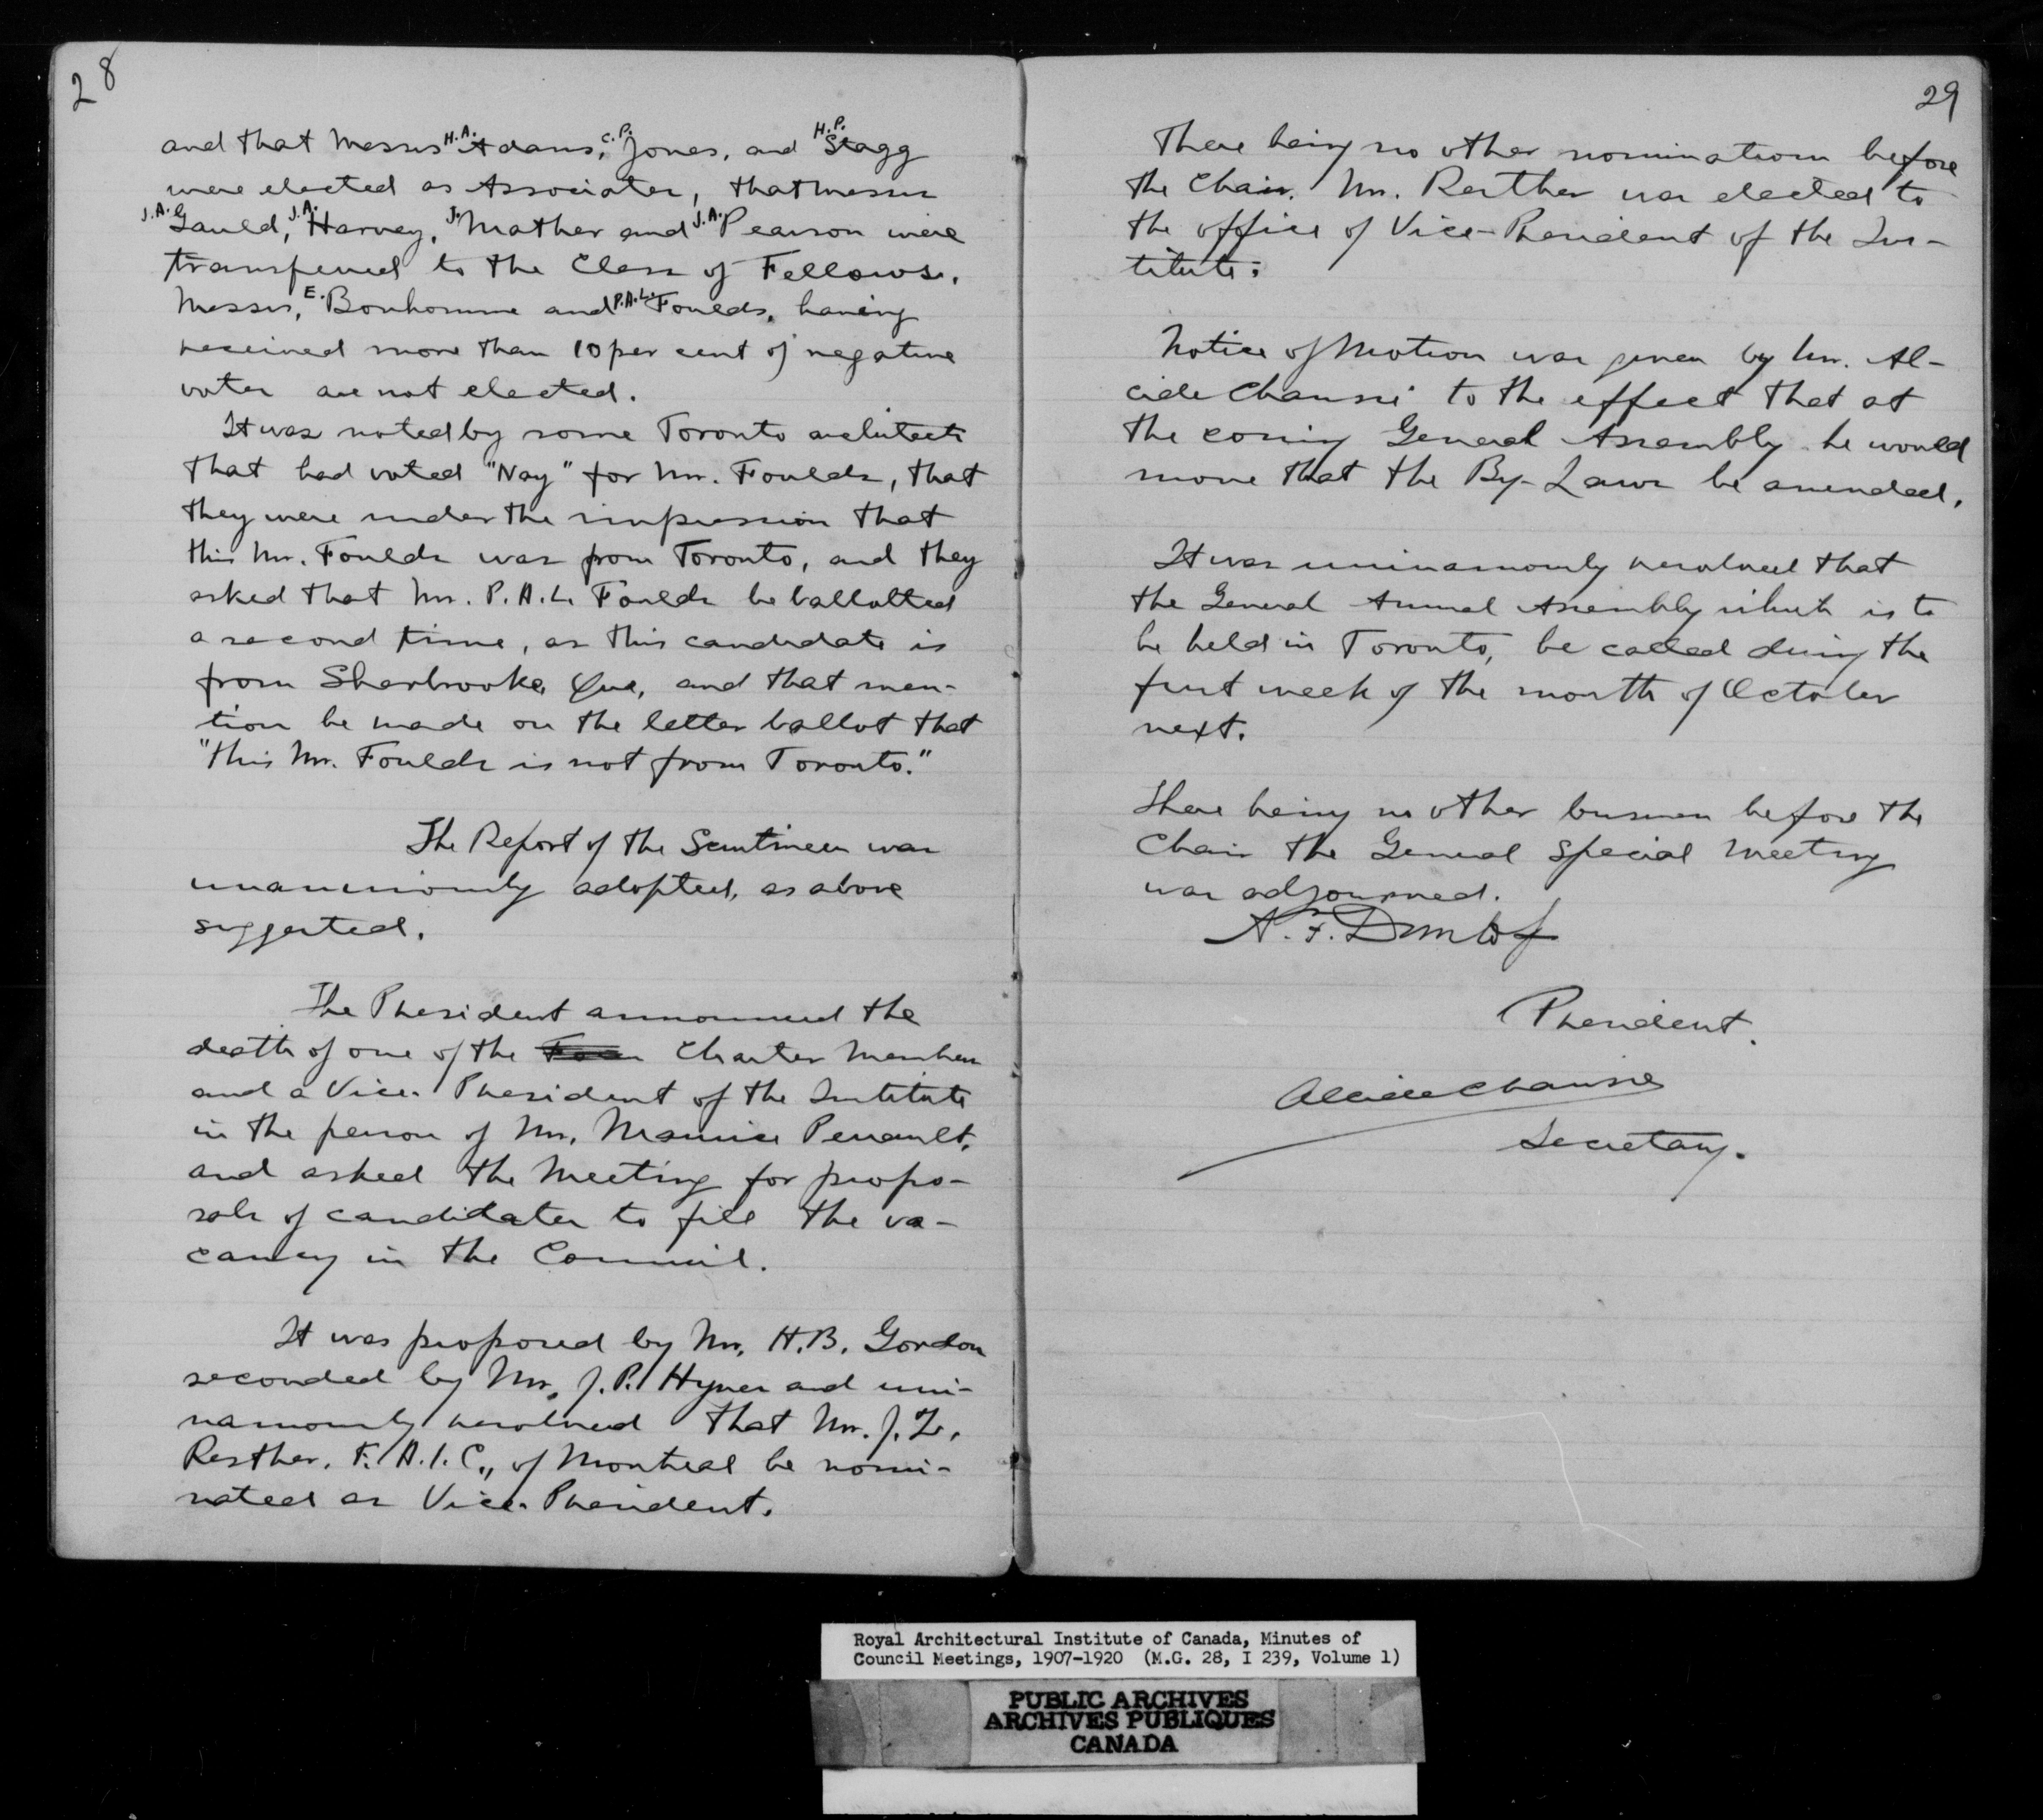 28
and that Messrs H.A. Adams, C.P. Jones, and H.P. Stagg
were elected as Associates, that Messrs
J.A. Gauld, J.A. Harvey, J. Mather and J.A. Pearson were
transferred to the Class of Fellows.
Messrs, E. Bonhomme and P.A.L. Foulds, having
received more than 10 per cent of negative
votes are not elected.
It was noted by some Toronto architects
that had voted "Nay" for Mr. Foulds, that
they were under the impression that
this Mr. Foulds was from Toronto, and they
asked that Mr. P.A.L. Foulds be ballotted
a second time, as this candidate is
from Sherbrooke, Que, and that men-
tion be made on the letter ballot that
"this Mr. Foulds is not from Toronto."
The Report of the Scrutineers was
unanimously adopted, as above
suggested.
The President announced the
death of one of the Charter Members
and a Vice-President of the Institute
in the person of Mr. Maurice Perrault,
and asked the Meeting for propo-
sals of candidates to fill the va-
cancy in the Council.
It was proposed by Mr. H.B. Gordon
seconded by Mr. J.P. Hynes and uni-
namously resolved that Mr. J. Z.
Resther, F.A.I.C., of Montreal be nomi-
nated as Vice-President.
29
There being no other nominations before
the Chair. Mr. Resther was elected to
the office of Vice-President of the Ins-
titute.
Notice of Motion was given by Mr. Al-
cide Chaussé to the effect that at
the coming General Assembly he would
move that the By-Laws be amended.
It was uninamously resolved that
the General Annual Assembly which is to
be held in Toronto, be called during the
first week of the month of October
next.
There being no other business before the
Chair the General Special Meeting
was adjourned.
A. F. Dunlop
President.
Alcide Chaussé
Secretary.
Royal Architectural Institute of Canada, Minutes of
Council Meetings, 1907-1920 (M.G. 28, I 239, Volume 1)
PUBLIC ARCHIVES
ARCHIVES PUBLIQUES
CANADA